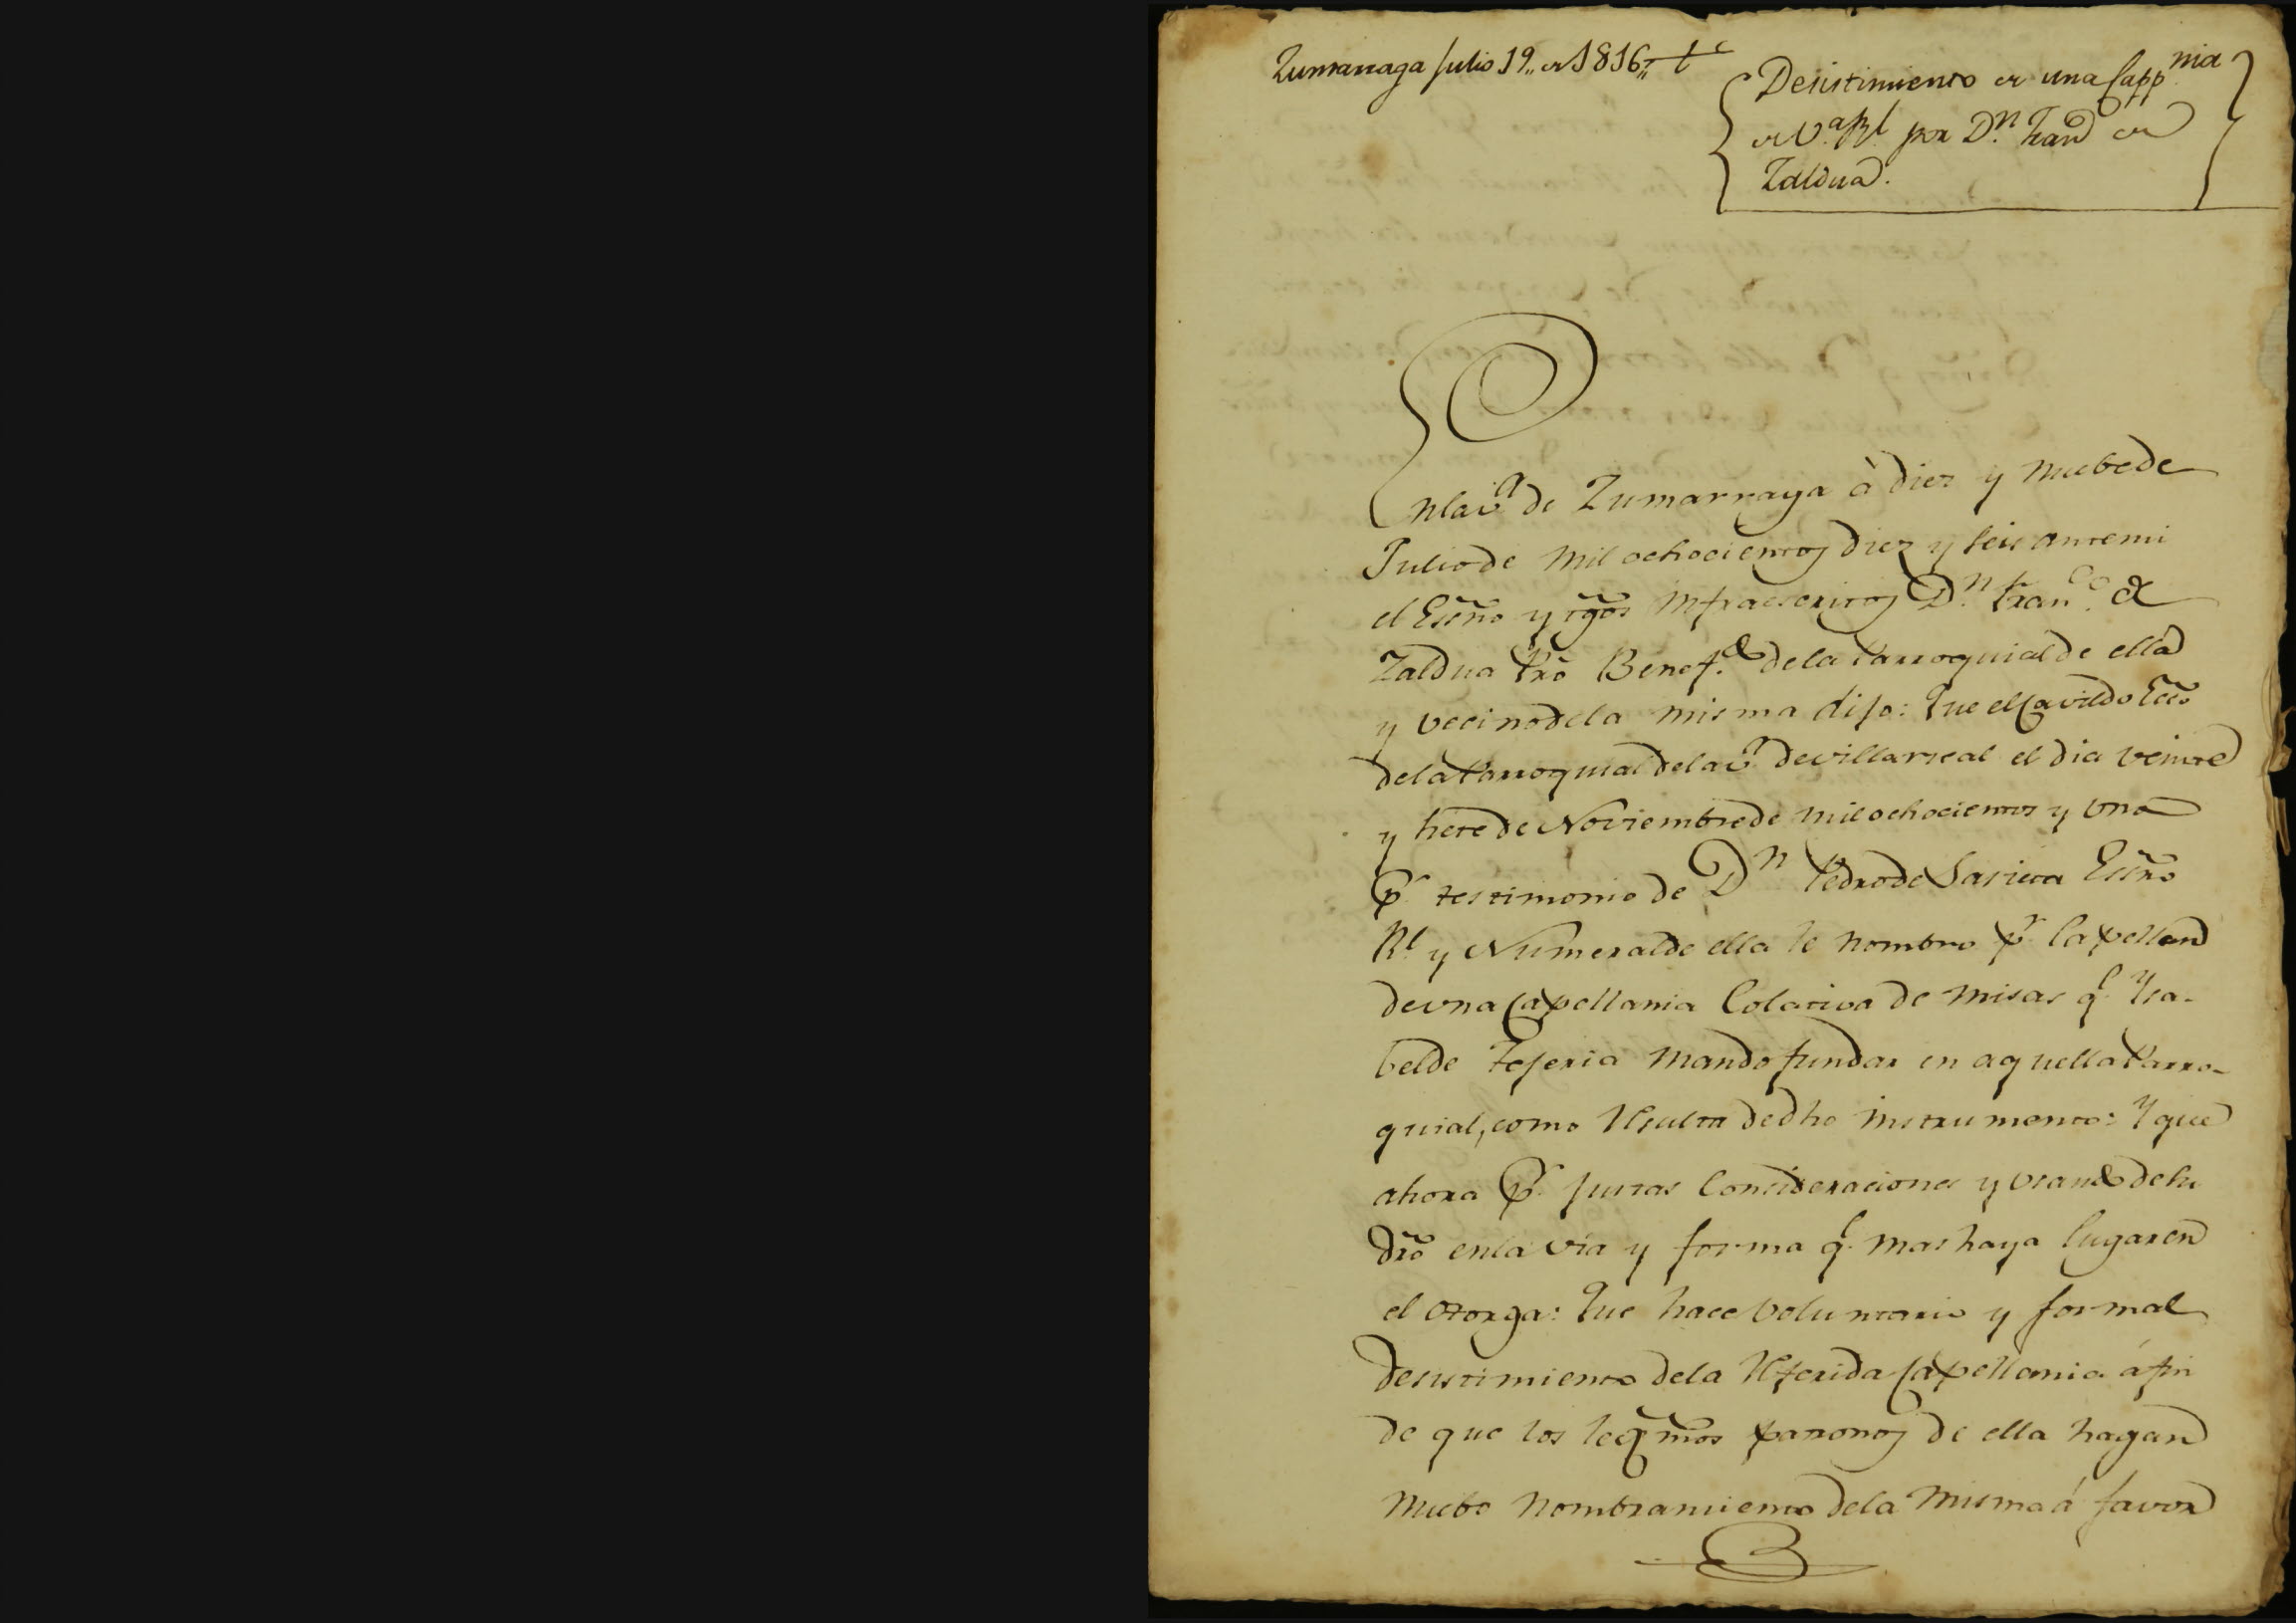 Zumarraga Julio 19,, de 1816,,
Desistimiento de una Capp.nia
de V.a Rl. por D.n Fran.co de
Zaldua.
En la v.a de Zumarraga à diez y nuebe de
Julio de mil ochocientos diez y seis ante mi
el Esc̃no y tg̃os infraescritos D.n Fran.co de
Zaldua Pr̃o Benef.do de la Parroquial de ella
y vecino de la misma dijo: Que el Cavildo Ecc̃o
de la Parroquial de la v.a de villarreal el dia veinte
y siete de Noviembre de mil ochocientos y uno
p.r testimonio de D.n Pedro de Sasieta Esc̃no
Rl. y Numeral de ella le nombro p.r Capellan
de vna Capellania Colativa de misas q.e Ysa-
bel de Tejeria mando fundar en aquella Parro-
quial, como resulta de dho instrumento: Y que
ahora p.r justas consideraciones y vsando de su
dr̃o en la via y forma q.e mas haya lugar en
el otorga: Que hace voluntario y formal
desistimiento de la referida Capellania á fin
de que los legm̃os patronos de ella hagan
nuebo nombramiento de la misma á favor